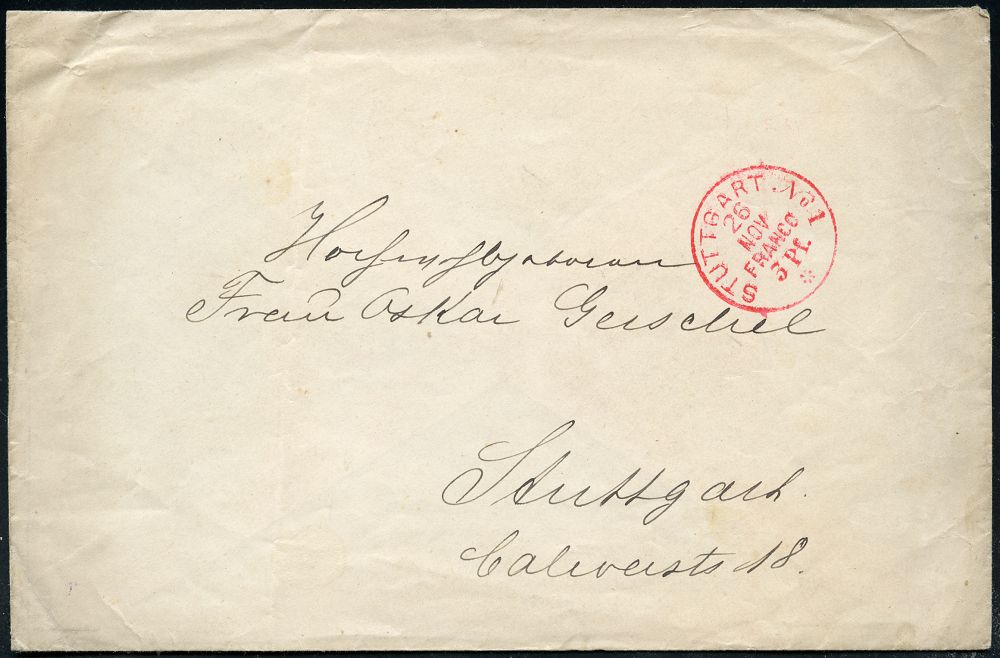 STUTTGART No 1
26
NOV
FRANCO
3 Pf.
*
Hochwohlgeboren
Frau Oskar Gerschel
Stuttgart.
Calwerstr 18.